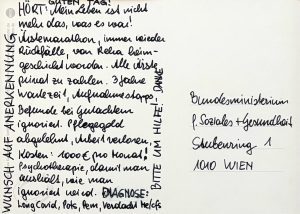 GUTEN TAG!
HÖRT! Mein Leben ist nicht
mehr das, was es war!
Ärztemarathon, immer wieder
Rückfälle, von Reha heim-
geschickt worden. Alle Ärzte
privat zu zahlen. 3 Jahre
Wartezeit, Aufnahmestopps
Befunde bei Gutachten
ignoriert. Pflegegeld
abgelehnt, Arbeit verloren,
Kosten: 1000€ pro Monat!
Psychotherapie, damit man
aushält, wie man
ignoriert wird. DIAGNOSE:
Long Covid, Pots, Pem, Verdacht Me/cfs
WUNSCH AUF ANERKENNUNG
BITTE UM HILFE! DANKE
Bundesministerium
f. Soziales + Gesundheit
Stubenring 1
1010 WIEN